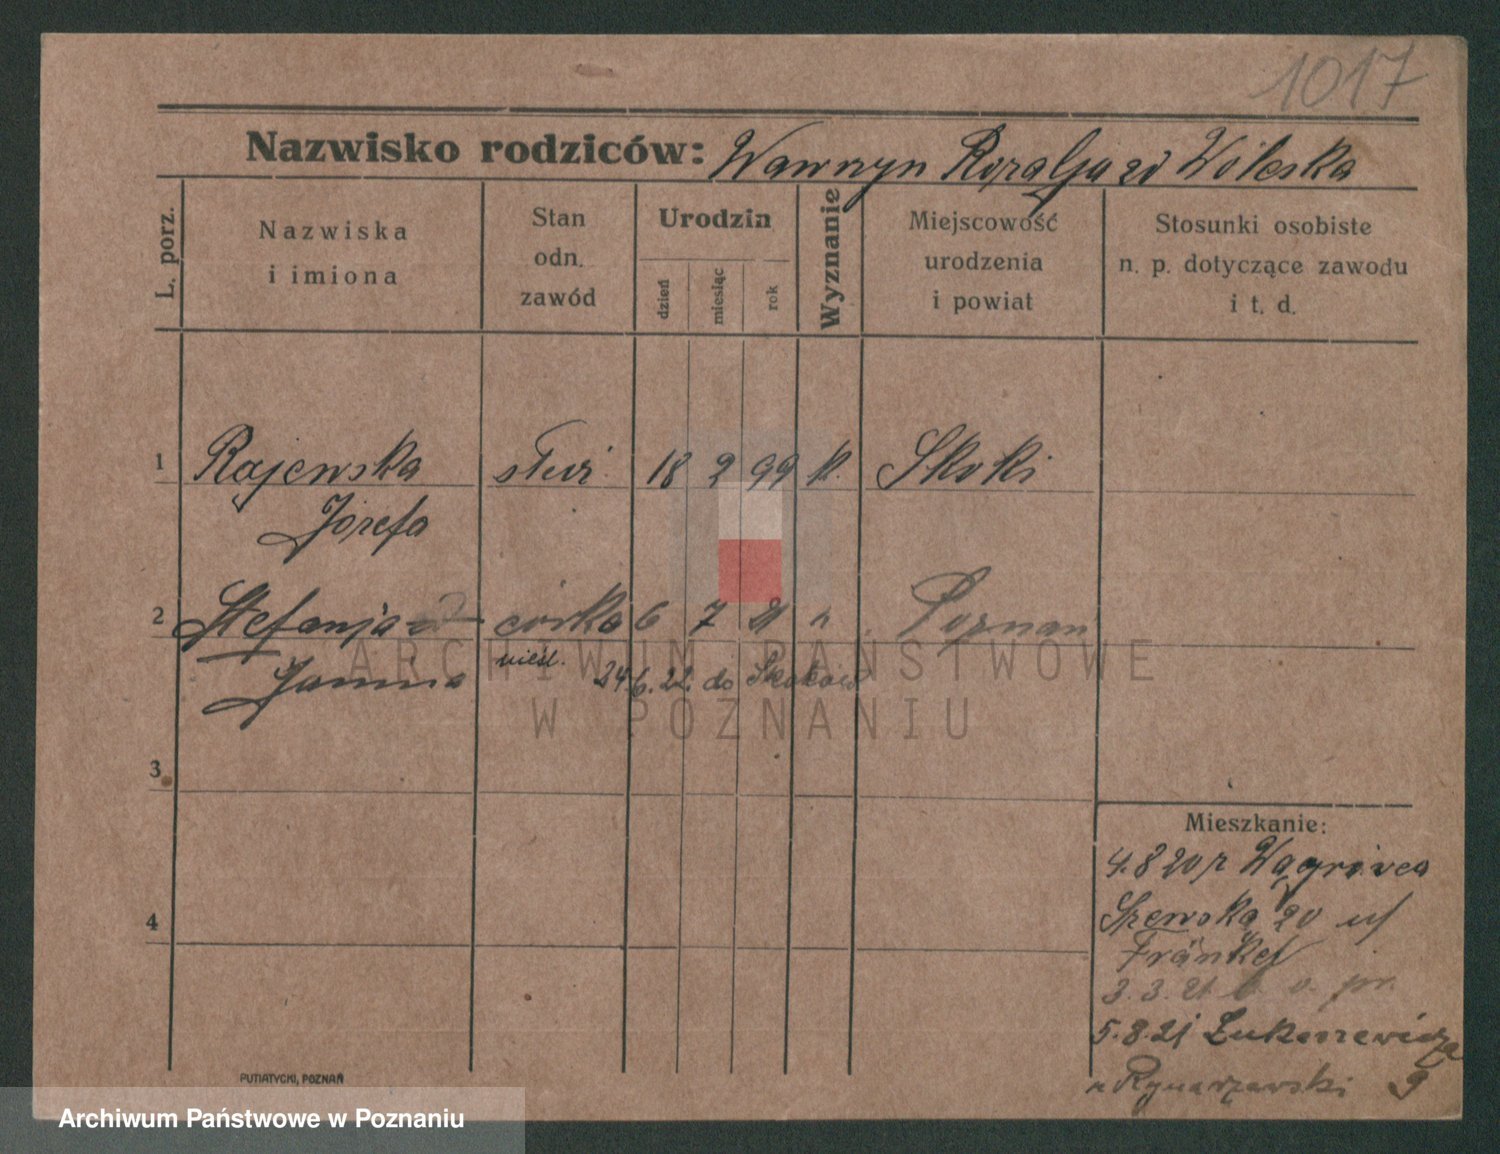 1017
Nazwisko rodziców: Wawrzyn Rozalja zd Wóleska
L. porz.
Nazwiska
i imiona
Stan
odn.
zawód
Urodzin
dzień
miesiąc
rok
Wyznanie
Miejscowość
urodzenia
i powiat
Stosunki osobiste
n. p. dotyczące zawodu
i t. d.
1 Rajewska służ. 18 2 99 k. Skoki
Józefa
2 Stefanja córka 6 7 21 " Poznan
Janina nieśl. 24.6.22. do Skoków
3
4
Mieszkanie:
4.8 20 z Wągrówca
Szewska 20 u/
Fränkel
3.3.21 b. o. pr.
5.8.21 Łukaszewicza
u Rynarzewski 9
PUTIATYCKI, POZNAŃ
ARCHIWUM PAŃSTWOWE
W POZNANIU
Archiwum Państwowe w Poznaniu